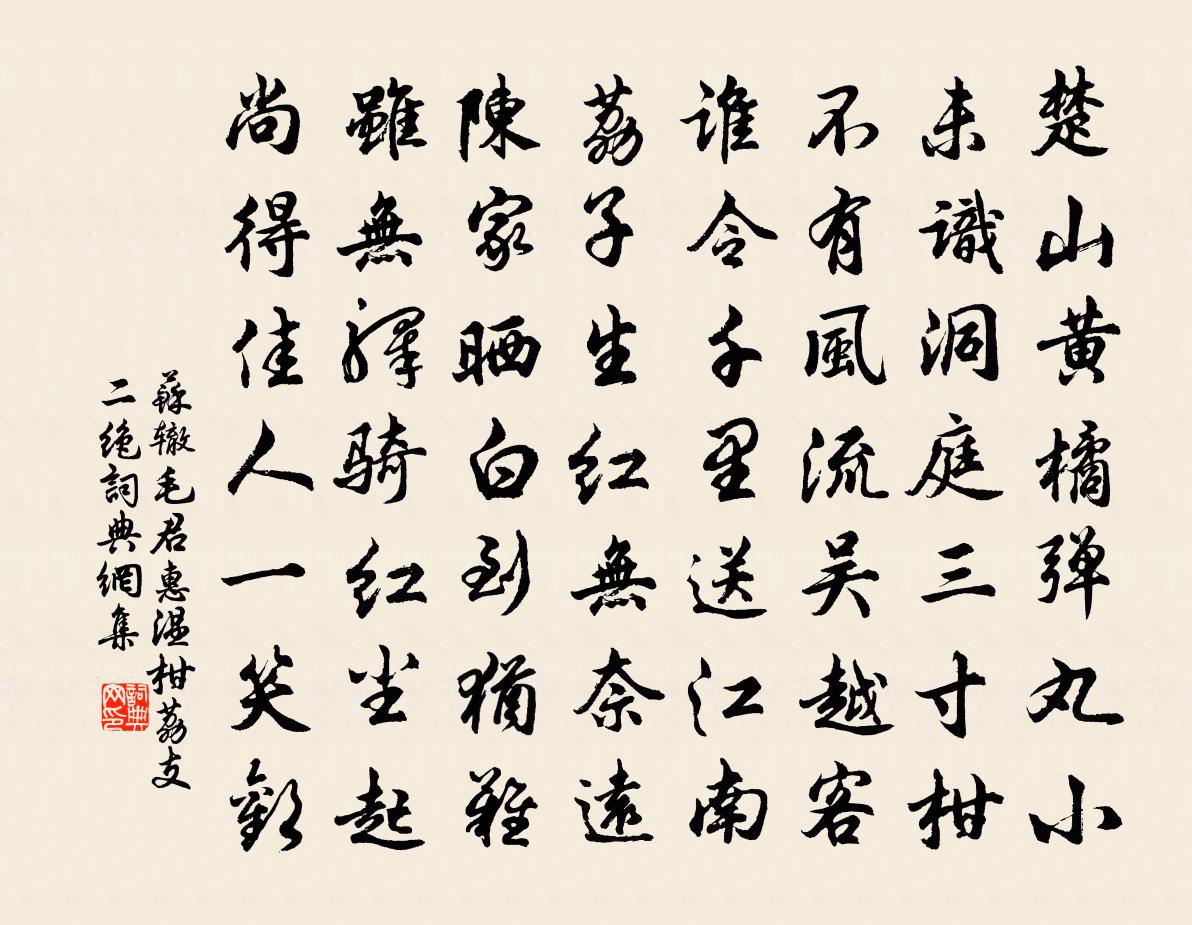 楚山黄橘弹丸小
未識洞庭三寸柑
不有風流吴越客
谁令千里送江南
荔子生红無奈遠
陳家晒白到猶難
雖無驛骑红尘起
尚得佳人一笑歡
蘇辙毛君惠温柑荔支
二绝詞典網集
詞典
网印